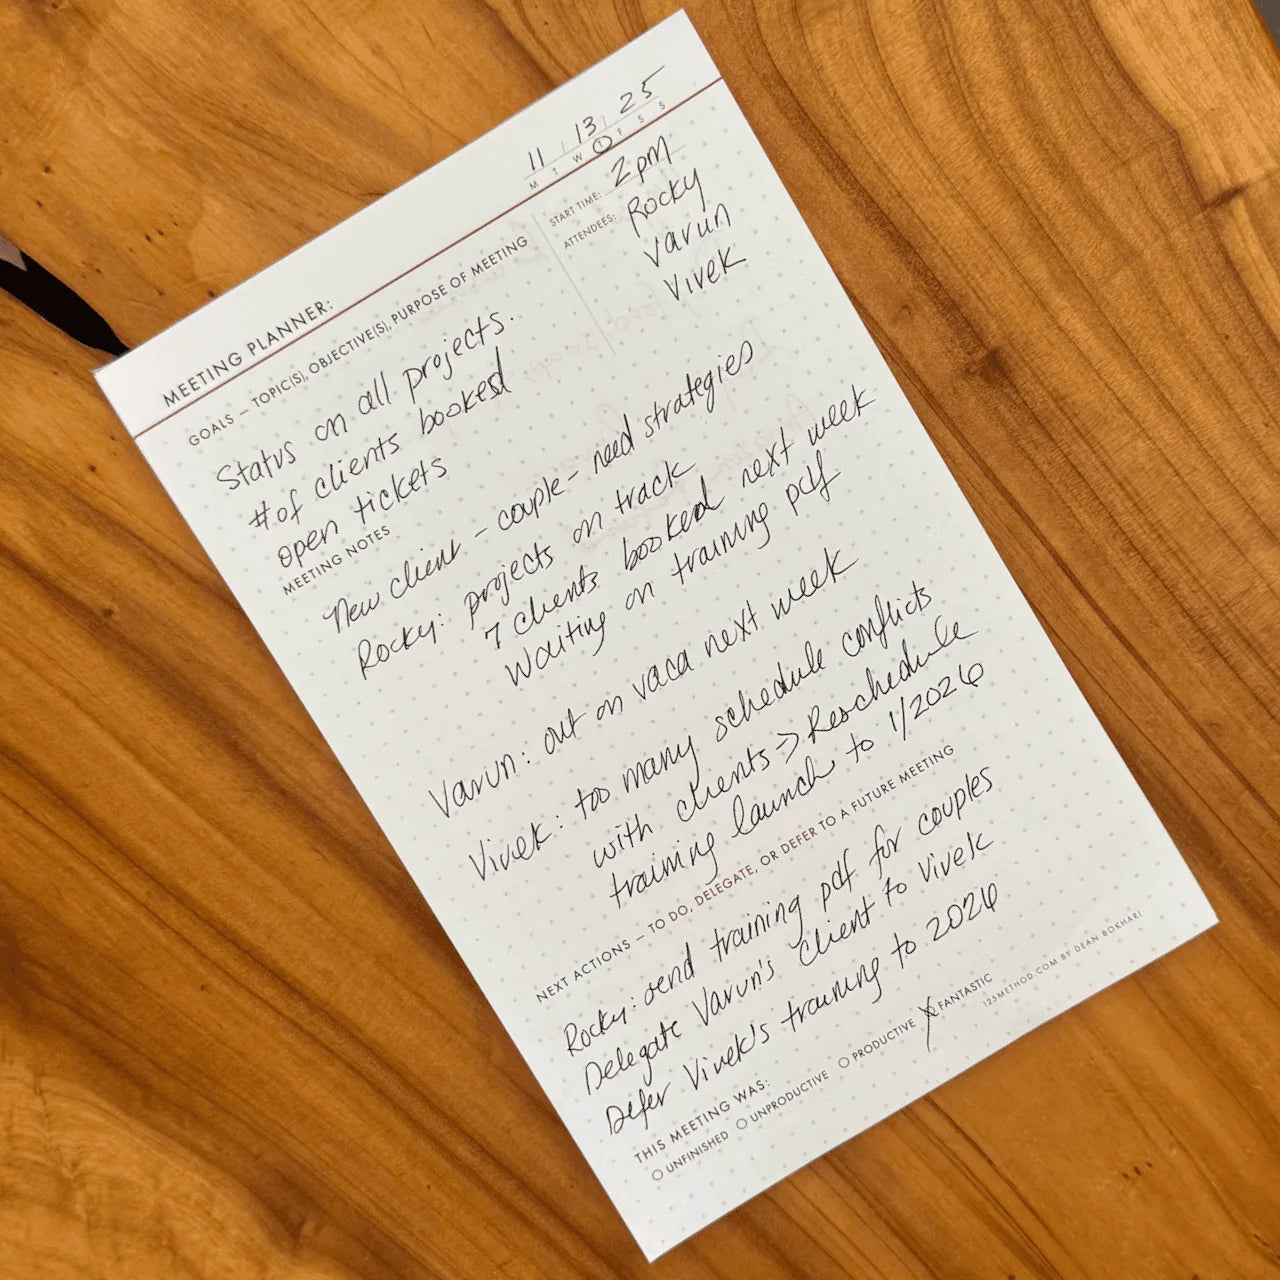 11 13 25
M T W T F S S
MEETING PLANNER:
GOALS – TOPIC(S), OBJECTIVE(S), PURPOSE OF MEETING
Status on all projects.
# of clients booked
open tickets
START TIME: 2pm
ATTENDEES: Rocky
Varun
Vivek
MEETING NOTES
New client - couple - need strategies
Rocky: projects on track
7 clients booked next week
Waiting on training pdf
Varun: out on vaca next week
Vivek: too many schedule conflicts
with clients => Reschedule
training launch to 1/2026
NEXT ACTIONS – TO DO, DELEGATE, OR DEFER TO A FUTURE MEETING
Rocky: send training pdf for couples
Delegate Varun's client to Vivek
Defer Vivek's training to 2026
THIS MEETING WAS:
UNFINISHED UNPRODUCTIVE PRODUCTIVE X FANTASTIC
123METHOD.COM BY DEAN BOKHARI